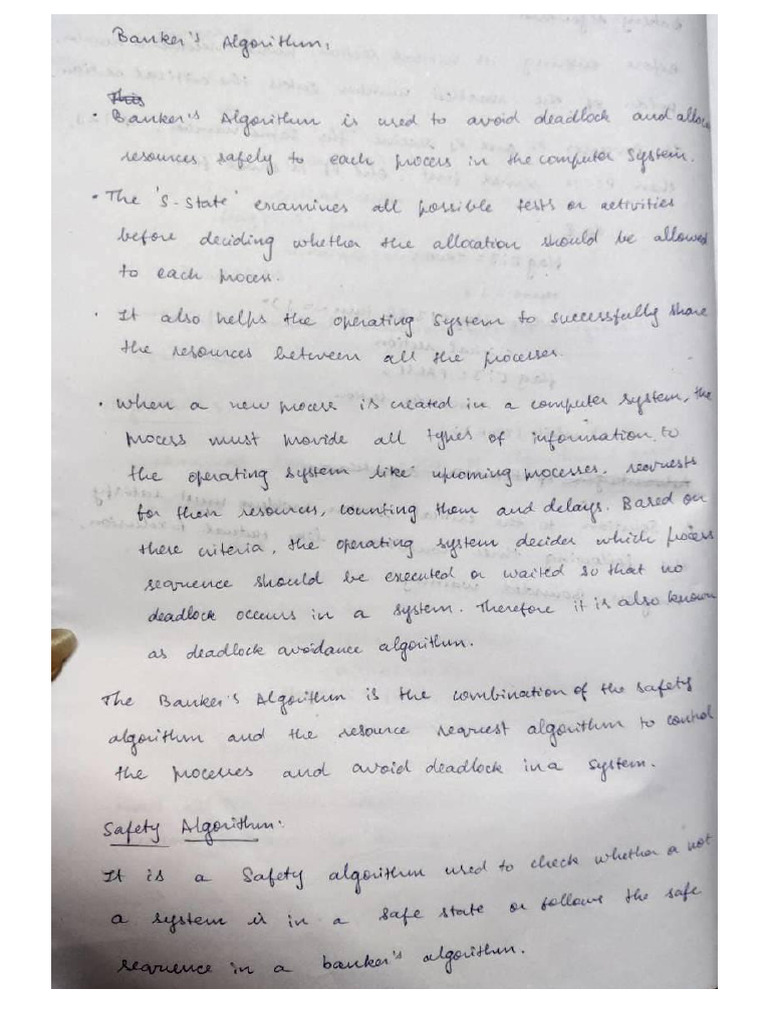 Banker's Algorithm:
This
• Banker's Algorithm is used to avoid deadlock and alloca
resources safely to each process in the computer System.
• The 'S-State' examines all possible tests or activities
before deciding whether the allocation should be allowed
to each process.
• It also helps the operating System to successfully share
the resources between all the processes.
• When a new process is created in a computer system, the
process must provide all types of information to
the operating system like upcoming processes, requests
for their resources, counting them and delays. Based on
these criteria, the operating system decides which process
sequence should be executed or waited so that no
deadlock occurs in a system. Therefore it is also known
as deadlock avoidance algorithm.
The Banker's Algorithm is the combination of the safety
algorithm and the resource request algorithm to control
the processes and avoid deadlock in a system.
Safety Algorithm:
It is a Safety algorithm used to check whether or not
a system is in a safe state or follows the safe
sequence in a banker's algorithm.